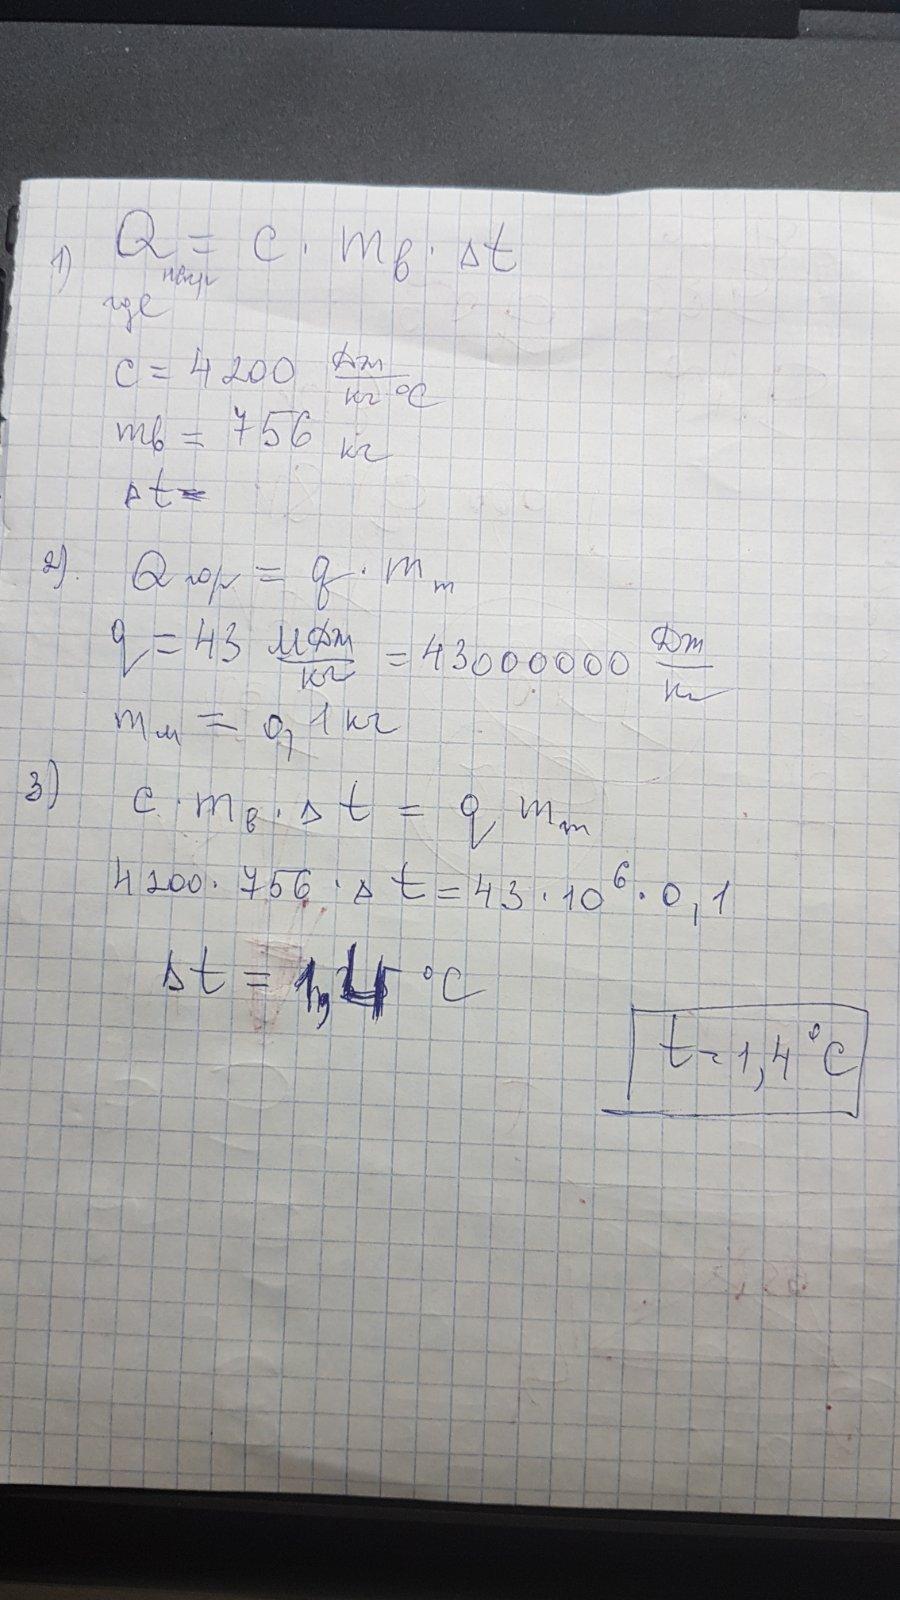 1) Qнагр = c · mв · Δt
где
c = 4200 Дж/кг °C
mв = 756 кг
Δt =
2). Qгор = q · mт
q = 43 МДж/кг = 43000000 Дж/кг
mм = 0,1 кг
3) c · mв · Δt = q mт
4200 · 756 · Δt = 43 · 10⁶ · 0,1
Δt = 1,4 °C
t = 1,4 °C